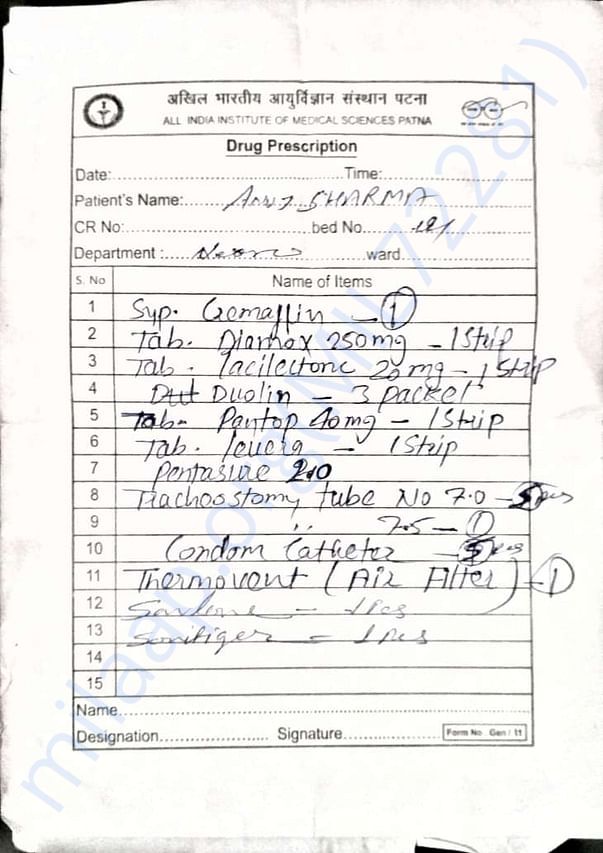 अखिल भारतीय आयुर्विज्ञान संस्थान पटना
ALL INDIA INSTITUTE OF MEDICAL SCIENCES PATNA
Drug Prescription
Date: Time:
Patient's Name: SHARMIA
CR No: bed No.
Department : ward
S. No Name of Items
1 Syp. Cremaffin - 1
2 Tab. Diamox 250mg - 1 Strip
3 Tab. Lacilectone 20mg - 1 Strip
4 Duolin - 3 Packet
5 Tab- Pantop 40mg - 1 Strip
6 Tab. levera - 1 Strip
7 Pentasure 2.0
8 Trachoostomy tube No 7.0 - 5 pcs
9 ,, 7.5 - 1
10 Condom Catheter - 5 pcs
11 Thermovent (Air Filter) - 1
12 Savlone - 1 Pcs
13 Sanitizer - 1 Pcs
14
15
Name
Designation Signature Form No Gen / 11
milaap.org